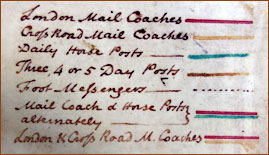 London Mail Coaches
Croſs Road Mail Coaches
Daily Horse Posts
Three, 4 or 5 Day Posts
Foot Messengers
Mail Coach & Horse Posts
alternately
London & Croſs Road M. Coaches